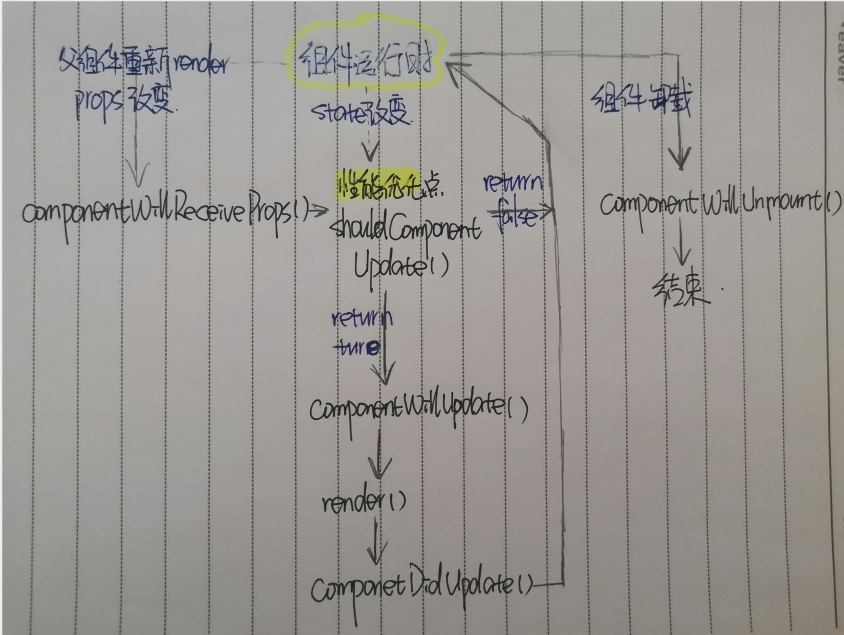 父组件重新render
props改变
组件运行时
state改变
组件卸载
componentWillReceiveProps()
性能优化点
shouldComponent
Update()
return
false
componentWillUnmount()
结束
return
ture
componentWillUpdate()
render()
componetDidUpdate()